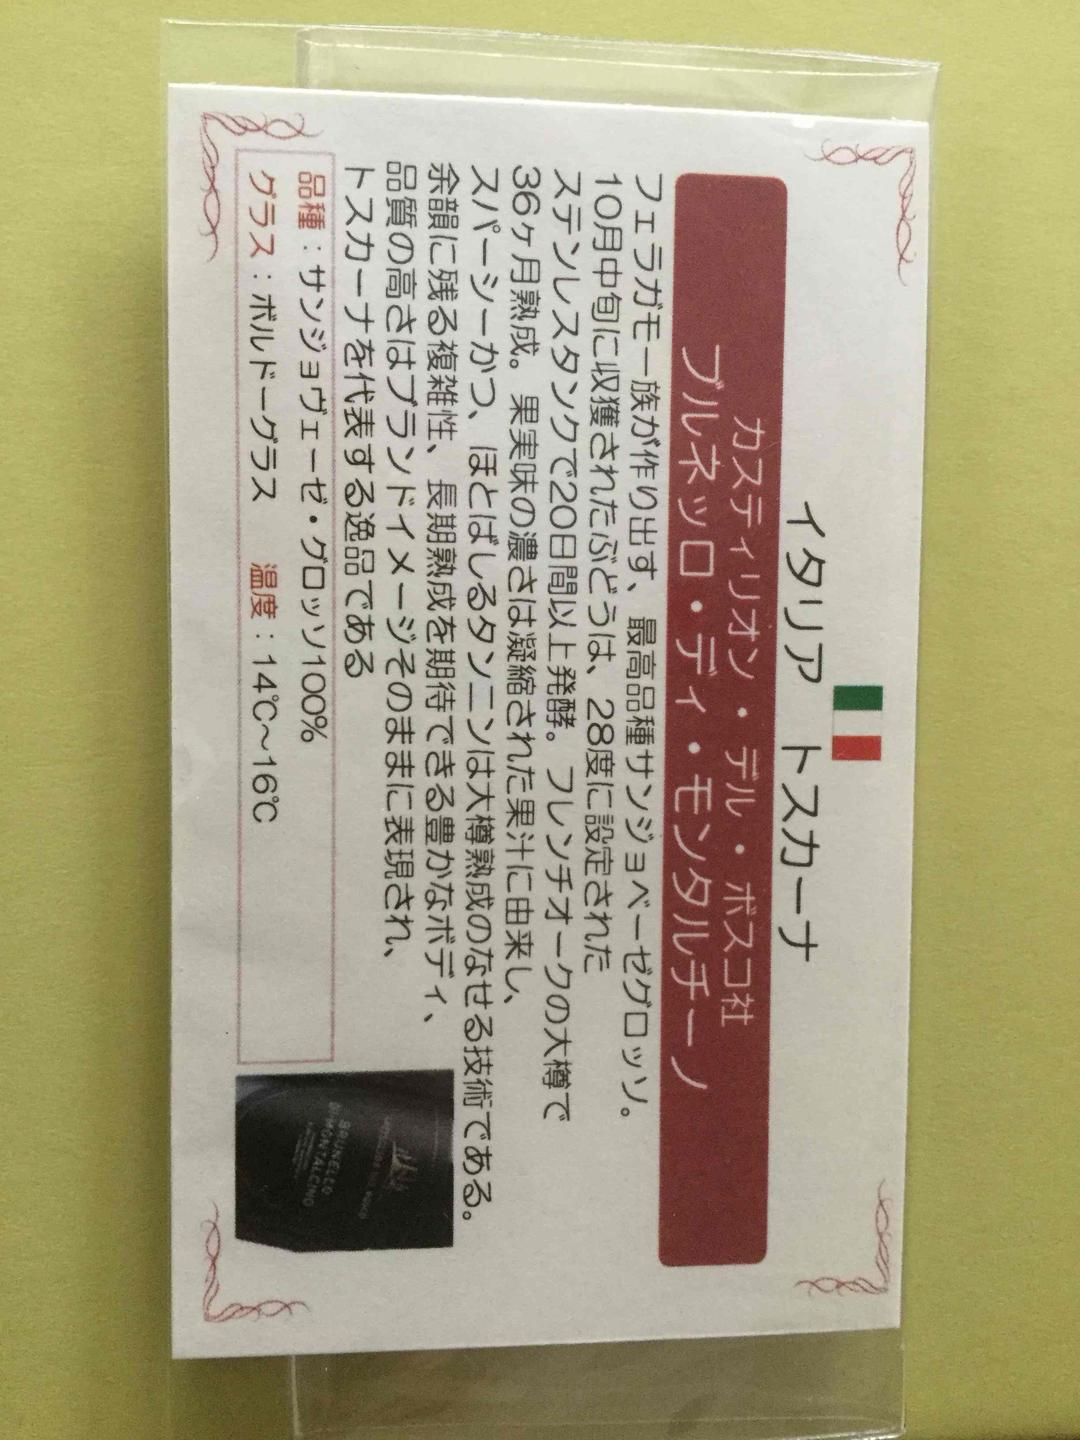 イタリア　トスカーナ
カスティリオン・デル・ボスコ社
ブルネッロ・ディ・モンタルチーノ
フェラガモ一族が作り出す、最高品種サンジョベーゼグロッソ。
10月中旬に収獲されたぶどうは、28度に設定された
ステンレスタンクで20日間以上発酵。フレンチオークの大樽で
36ヶ月熟成。果実味の濃さは凝縮された果汁に由来し、
スパーシーかつ、ほとばしるタンニンは大樽熟成のなせる技術である。
余韻に残る複雑性、長期熟成を期待できる豊かなボディ、
品質の高さはブランドイメージそのままに表現され、
トスカーナを代表する逸品である
品種：サンジョヴェーゼ・グロッソ100%
グラス：ボルドーグラス　温度：14℃～16℃
BRUNELLO
DI MONTALCINO